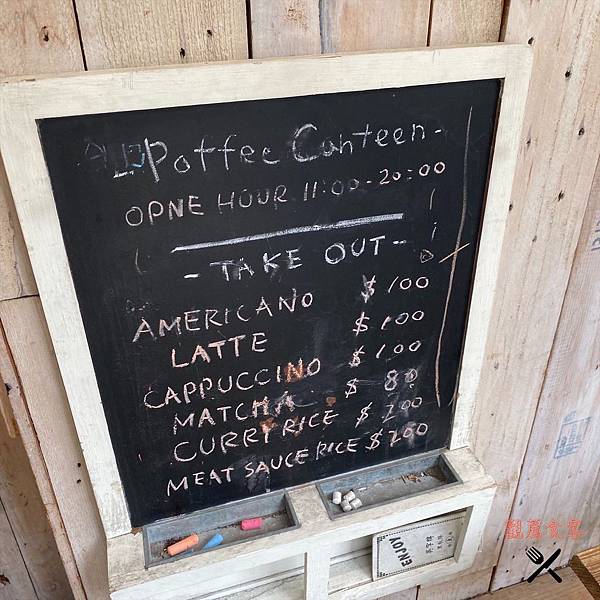 - Poffee Canteen -
OPNE HOUR 11:00-20:00
- TAKE OUT -
AMERICANO $100
LATTE $100
CAPPUCCINO $100
MATCHA $ 80
CURRY RICE $ 200
MEAT SAUCE RICE $200
ENJOY